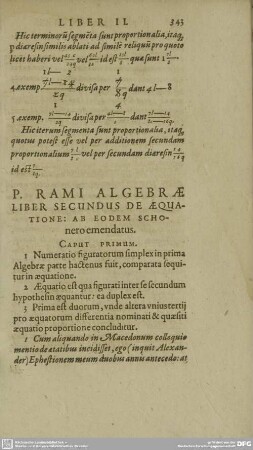 LIBER II. 343
Hic terminorũ segmẽta sunt proportionalia, itaq,
p diæresin similis ablati ad simile reliquũ pro quoto
licet haberi vel vel id est quæ sunt
4. exemp. divisa per dant 4l — 8
5. exemp. divisa per dant
Hic iterum segmenta sunt proportionalia, itaq,
quotus potest esse vel per additionem secundam
proportionalium vel per secundam diæresin
id est
P. RAMI ALGEBRÆ
LIBER SECUNDUS DE ÆQUA-
TIONE: AB EODEM SCHO-
nero emendatus.
CAPUT PRIMUM.
1 Numeratio figuratorum simplex in prima
Algebræ parte hactenus fuit, comparata sequi-
tur in æquatione.
2 Æquatio est qua figurati inter se secundum
hypothesin æquantur: ea duplex est.
3 Prima est duorum, vnde altera vnius tertij
pro æquatorum differentia nominati & quæsiti
æquatio proportione concluditur.
1 Cum aliquando in Macedonum colloquio
mentio de ætatibus incidisset, ego (inquit Alexan-
der) Ephestionem meum duobus annis antecedo: at